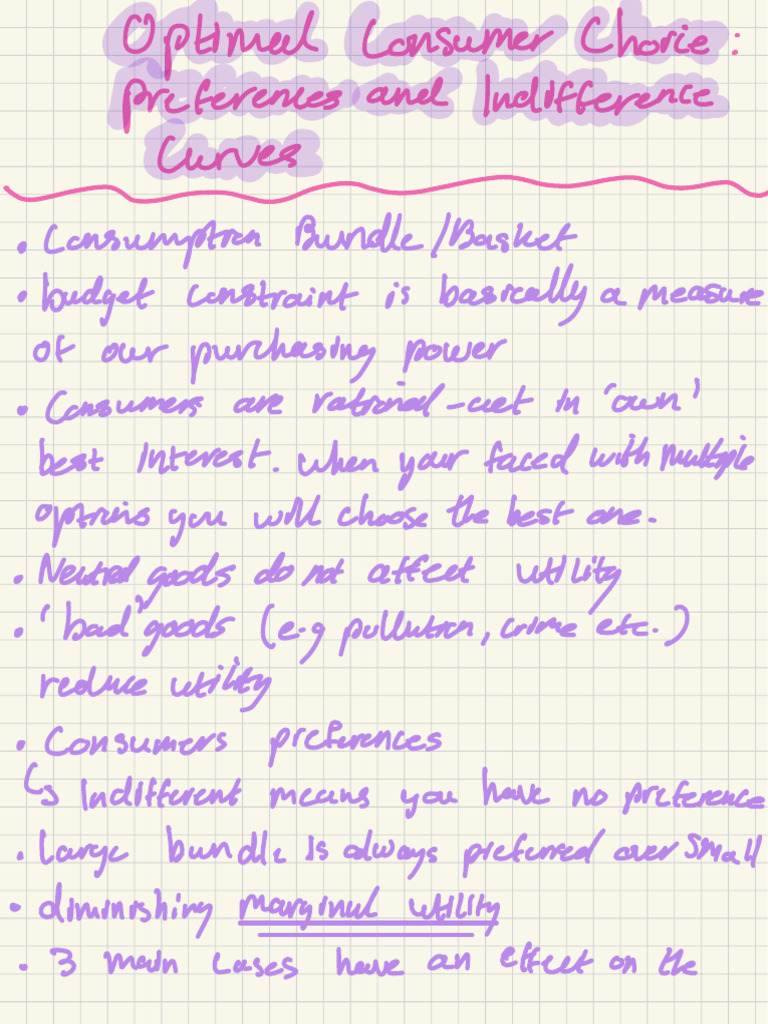 Optimal Consumer Choice:
Preferences and Indifference
Curves
• Consumption Bundle/Basket
• budget constraint is basically a measure
of our purchasing power
• Consumers are rational - act in 'own'
best interest. when your faced with multiple
options you will choose the best one.
• Neutral goods do not affect utility
• 'bad' goods (e.g pollution, crime etc.)
reduce utility
• Consumers preferences
↳ Indifferent means you have no preference
• Large bundle is always preferred over small
• diminishing marginal utility
• 3 main cases have an effect on the